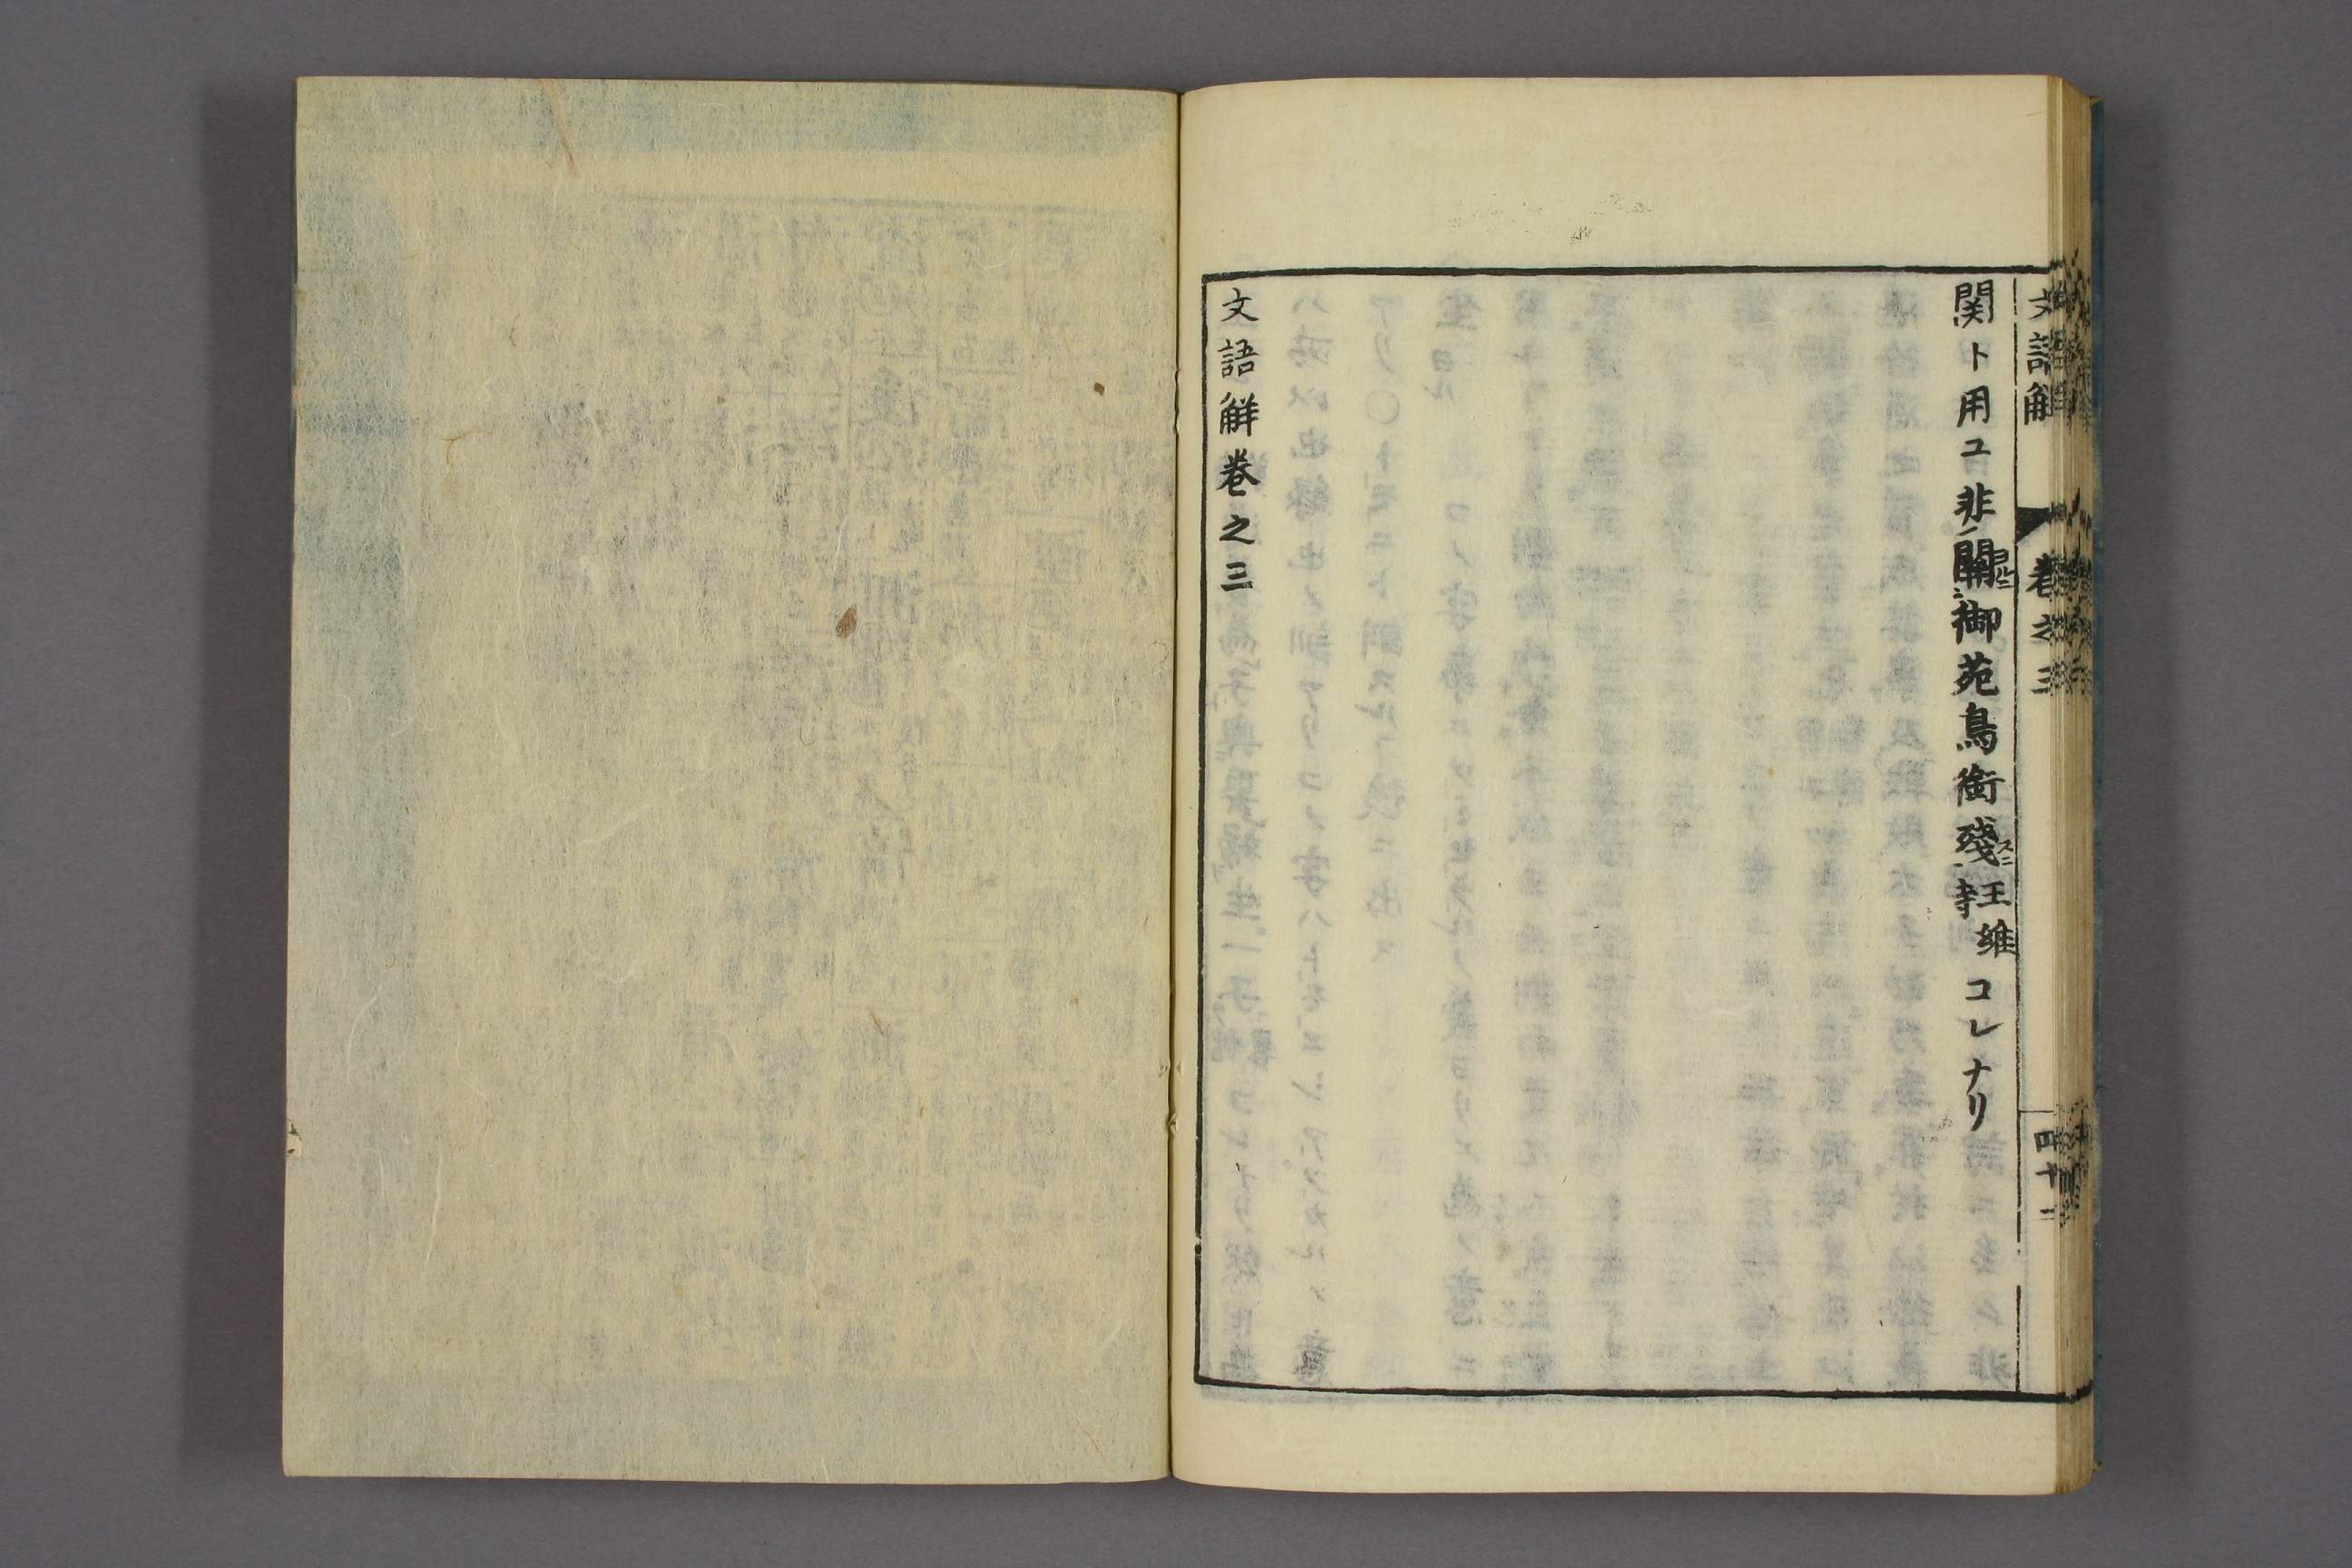 文語解 卷之三 四十二
関ト用ユ非関御苑鳥銜殘王維詩コレナリ
文語解卷之三